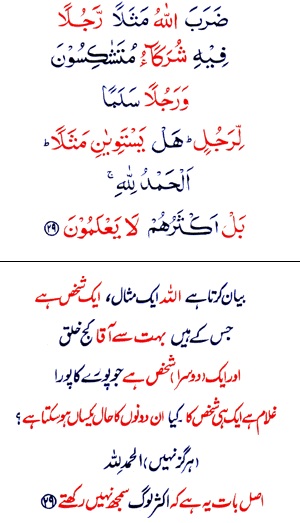 ضَرَبَ اللّٰهُ مَثَلًا رَّجُلًا
فِيْهِ شُرَكَآءُ مُتَشٰكِسُوْنَ
وَرَجُلًا سَلَمًا
لِّرَجُلٍ ؕ هَلْ يَسْتَوِيٰنِ مَثَلًا ؕ
اَلْحَمْدُ لِلّٰهِ ۚ
بَلْ اَكْثَرُهُمْ لَا يَعْلَمُوْنَ ﴿۲۹﴾
بیان کرتا ہے اللہ ایک مثال، ایک شخص ہے
جس کے ہیں بہت سے آقا کج خلق
اور ایک (دوسرا) شخص ہے جو پورے کا پورا
غلام ہے ایک ہی شخص کا۔ کیا ان دونوں کا حال یکساں ہو سکتا ہے؟
(ہرگز نہیں) الحمدللہ
اصل بات یہ ہے کہ اکثر لوگ سمجھ نہیں رکھتے ﴿۲۹﴾